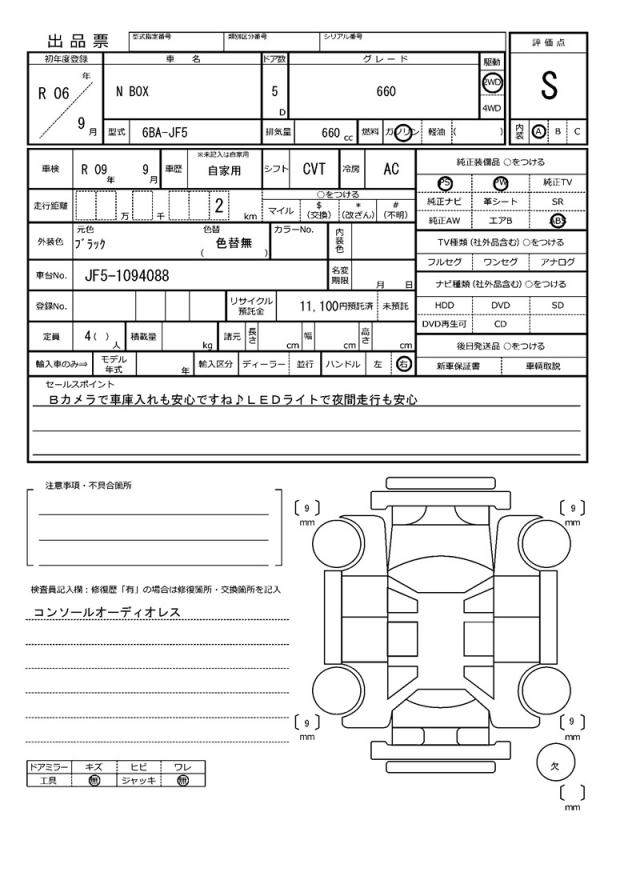 出品票 型式指定番号 類別区分番号 シリアル番号
評価点
初年度登録 車名 ドア数 グレード 駆動
R 06 年 N BOX 5 D 660 2WD S
4WD
9 月 型式 6BA-JF5 排気量 660 cc 燃料 ガソリン 軽油 ( ) 内装 A B C
車検 R 09 年 9 月 車歴 ※未記入は自家用 自家用 シフト CVT 冷房 AC 純正装備品 ○をつける
PS PW 純正TV
走行距離 万 千 2 km ○をつける 純正ナビ 革シート SR
マイル $(交換) *(改ざん) #(不明) 純正AW エアB ABS
外装色 元色 ブラック 色替 色替無 ( ) カラーNo. 内装色 TV種類 (社外品含む) ○をつける
フルセグ ワンセグ アナログ
車台No. JF5-1094088 名変期限 月 日 ナビ種類 (社外品含む) ○をつける
登録No. リサイクル預託金 11,100円預託済 未預託 HDD DVD SD
DVD再生可 CD
定員 4( ) 人 積載量 kg 諸元 長さ cm 幅 cm 高さ cm 後日発送品 ○をつける
輸入車のみ⇒ モデル年式 年 輸入区分 ディーラー 並行 ハンドル 左 右 新車保証書 車輌取説
セールスポイント
Bカメラで車庫入れも安心ですね♪LEDライトで夜間走行も安心
注意事項・不具合箇所
[ 9 ] mm [ 9 ] mm
検査員記入欄:修復歴「有」の場合は修復箇所・交換箇所を記入
コンソールオーディオレス
[ 9 ] mm [ 9 ] mm
ドアミラー キズ ヒビ ワレ
工具 無 ジャッキ 無
欠
[ ] mm